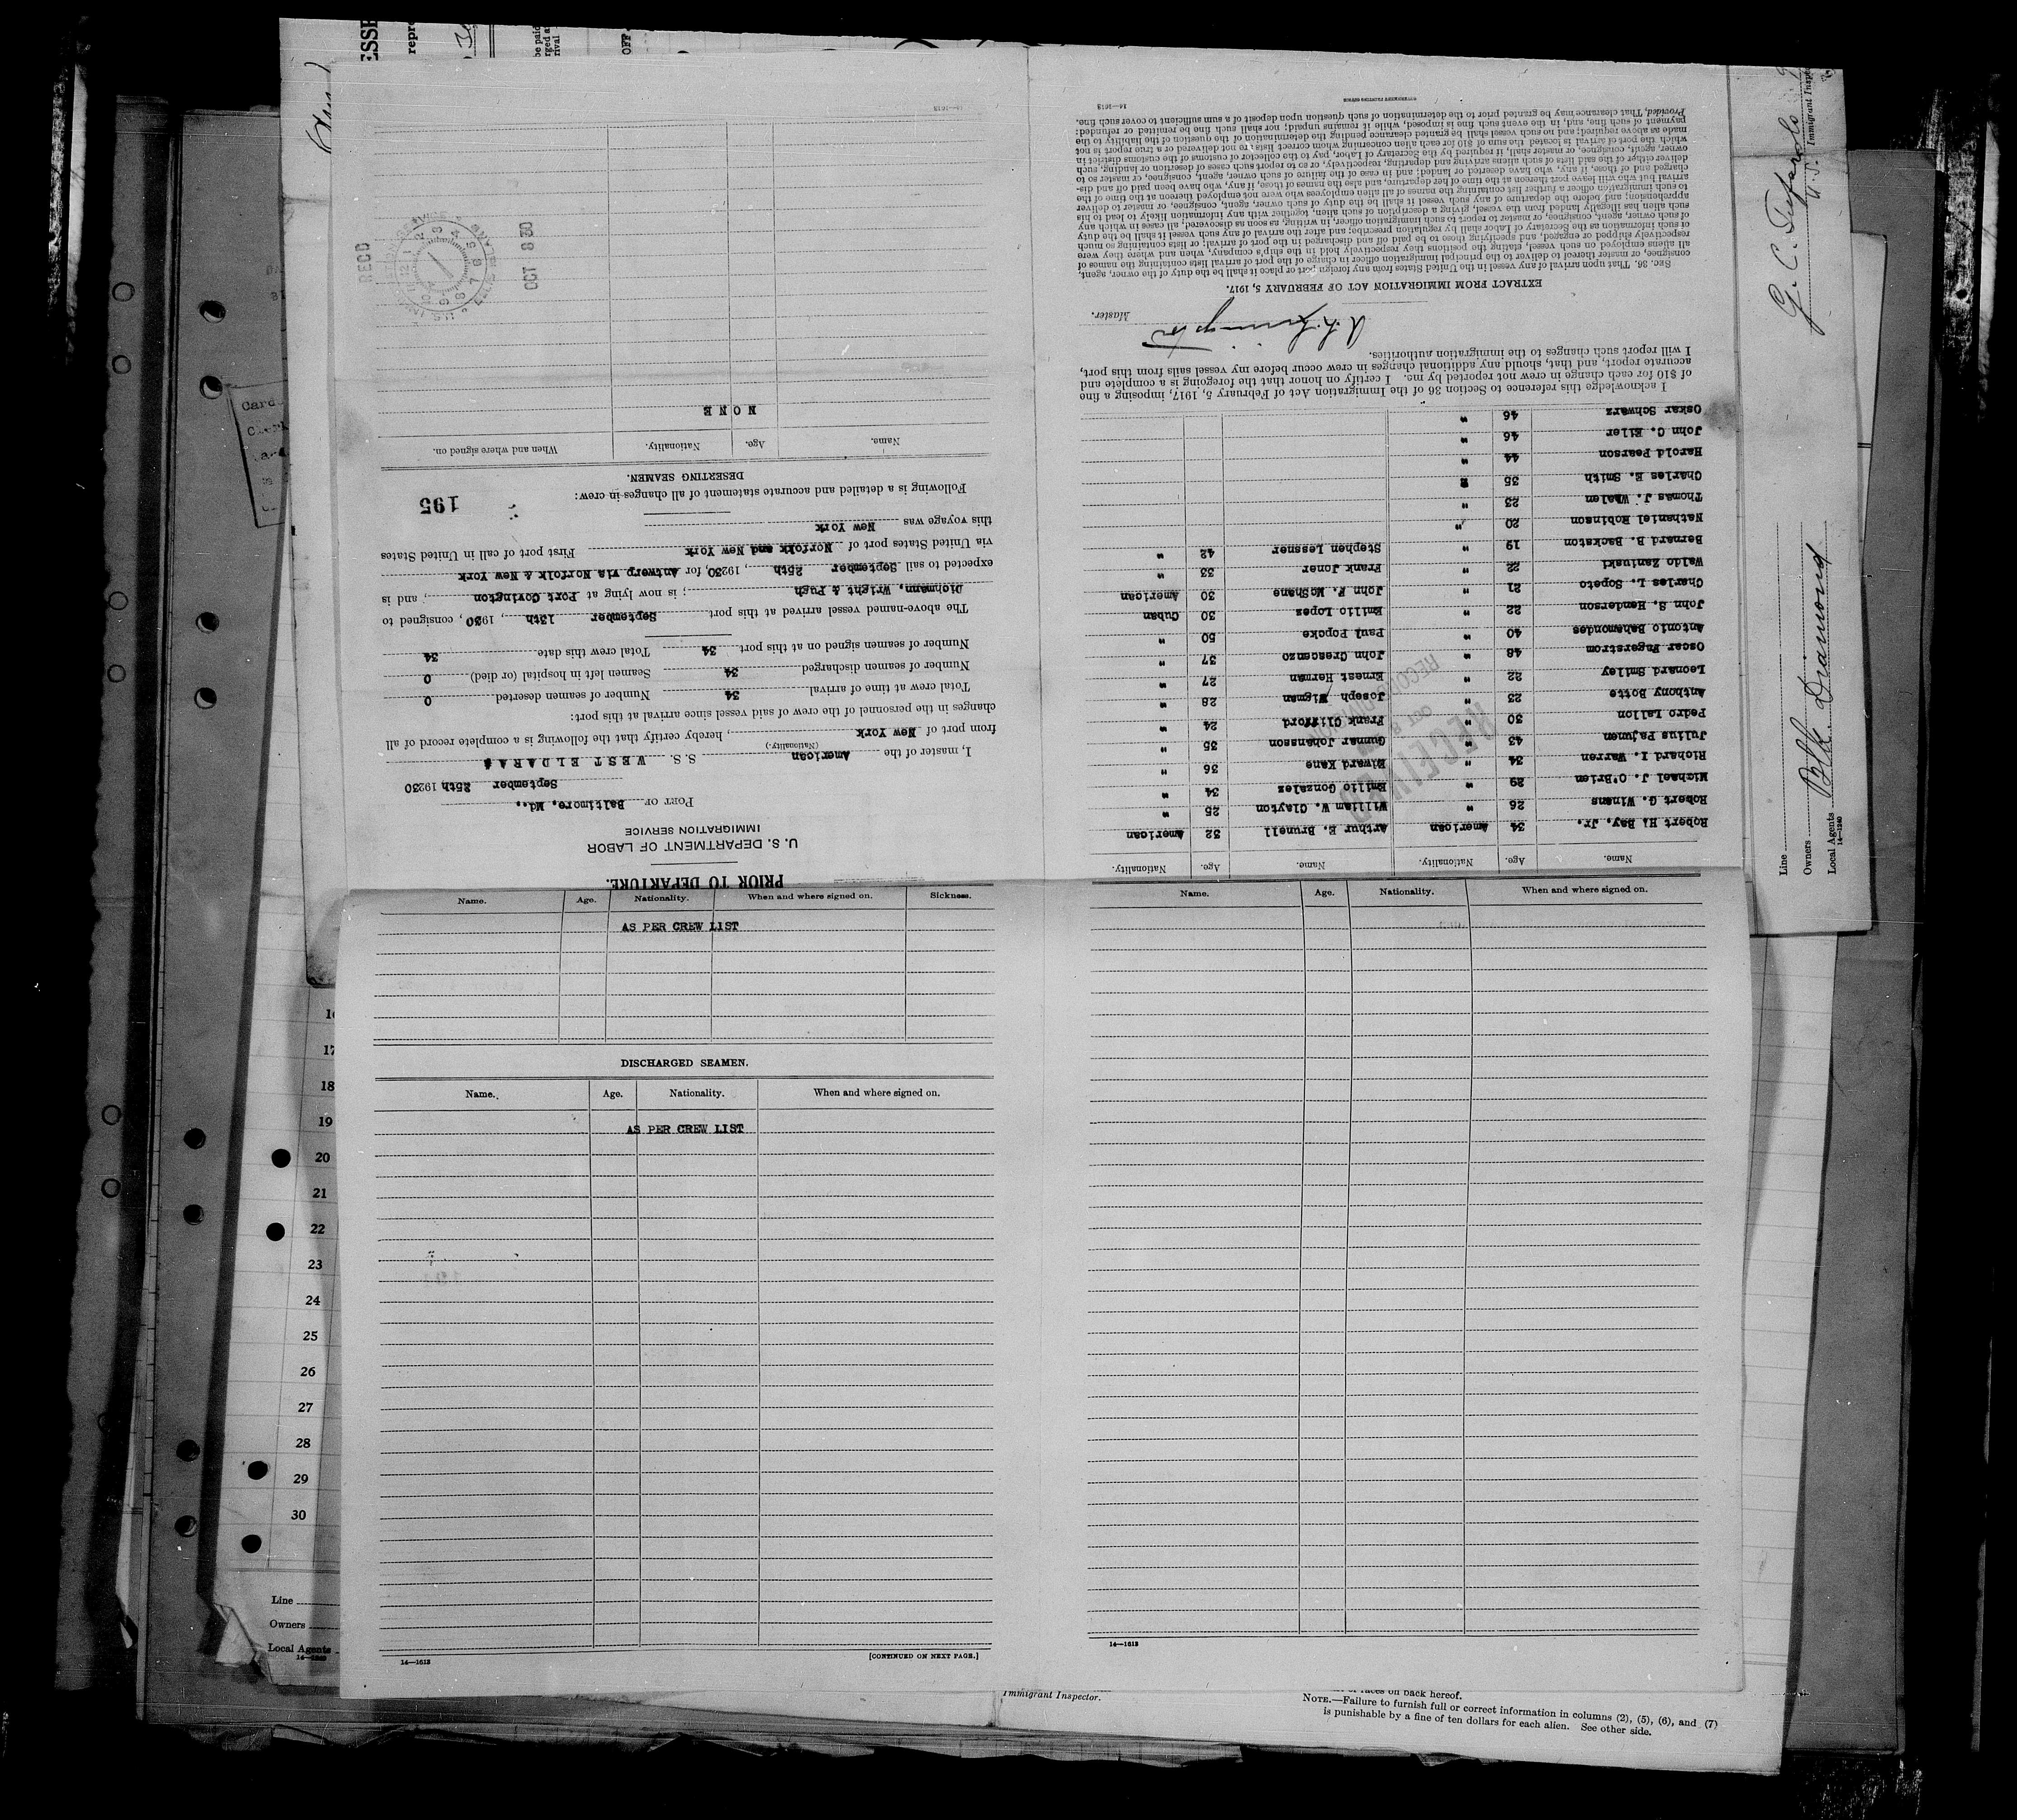 PRIOR TO DEPARTURE.
U. S. DEPARTMENT OF LABOR
IMMIGRATION SERVICE
PORT OF Baltimore, Md.,
September 25th 19230
I, master of the American S. S. WEST ELDARA
(Nationality.)
from port of New York, hereby certify that the following is a complete record of all
changes in the personnel of the crew of said vessel since arrival at this port:
Total crew at time of arrival 34 Number of seamen deserted 0
Number of seamen discharged 34 Seamen left in hospital (or died) 0
Number of seamen signed on at this port 34 Total crew this date 34
The above-named vessel arrived at this port September 13th, 1930, consigned to
Dichmann, Wright & Pugh; is now lying at Port Covington, and is
expected to sail September 25th, 19230, for Antwerp via Norfolk & New York
via United States port of Norfolk and New York First port of call in United States
this voyage was New York
195
Following is a detailed and accurate statement of all changes in crew:
DESERTING SEAMEN.
Name. Age. Nationality. When and where signed on.
NONE
REC'D
OCT 8 30
14—1613
Name. Age. Nationality. Name. Age. Nationality.
Robert H. Bay, Jr. 34 American Arthur E. Brunell 32 American
Robert G. Winans 26 " William W. Clayton 25 "
Michael J. O'Brien 29 " Emilio Gonzalez 34 "
Richard I. Warren 34 " Edward Kane 36 "
Julius Pajunen 43 " Gunnar Johansson 35 "
Pedro Lallon 30 " Frank Clifford 24 "
Anthony Botte 23 " Joseph Wigman 28 "
Leonard Smiley 22 " Ernest Herman 27 "
Oscar Fagerstrom 48 " John Crescenzo 37 "
Antonio Bahamondes 40 " Paul Popcke 50 "
John S. Henderson 22 " Emilio Lopez 30 Cuban
Charles L. Sopeto 21 " John F. McShane 30 American
Waldo Zaniuski 22 " Frank Joner 33 "
Bernard B. Backston 19 " Stephen Lessner 42 "
Nathaniel Robinson 20 "
Thomas J. Whalen 23 "
Charles E. Smith 35 "
Harold Pearson 44 "
John C. Eller 46 "
Oskar Schwarz 46 "
RECEIVED
OCT 8
I acknowledge this reference to Section 36 of the Immigration Act of February 5, 1917, imposing a fine
of $10 for each change in crew not reported by me. I certify on honor that the foregoing is a complete and
accurate report, and that, should any additional changes in crew occur before my vessel sails from this port,
I will report such changes to the immigration authorities.
Master.
EXTRACT FROM IMMIGRATION ACT OF FEBRUARY 5, 1917.
SEC. 36. That upon arrival of any vessel in the United States from any foreign port or place it shall be the duty of the owner, agent,
consignee, or master thereof to deliver to the principal immigration officer in charge of the port of arrival lists containing the names of
all aliens employed on such vessel, stating the positions they respectively hold in the ship's company, when and where they were
respectively shipped or engaged, and specifying those to be paid off and discharged in the port of arrival; or lists containing so much
of such information as the Secretary of Labor shall by regulation prescribe; and after the arrival of any such vessel it shall be the duty
of such owner, agent, consignee, or master to report to such immigration officer, in writing, as soon as discovered, all cases in which any
such alien has illegally landed from the vessel, giving a description of such alien, together with any information likely to lead to his
apprehension; and before the departure of any such vessel it shall be the duty of such owner, agent, consignee, or master to deliver
to such immigration officer a further list containing the names of all alien employees who were not employed thereon at the time of the
arrival but who will leave port thereon at the time of her departure, and also the names of those, if any, who have been paid off and dis-
charged and of those, if any, who have deserted or landed; and in case of the failure of such owner, agent, consignee, or master so to
deliver either of the said lists of such aliens arriving and departing, respectively, or so to report such cases of desertion or landing, such
owner, agent, consignee, or master shall, if required by the Secretary of Labor, pay to the collector of customs of the customs district in
which the port of arrival is located the sum of $10 for each alien concerning whom correct lists are not delivered or a true report is not
made as above required; and no such vessel shall be granted clearance pending the determination of the question of the liability to the
payment of such fine, and, in the event such fine is imposed, while it remains unpaid; nor shall such fine be remitted or refunded:
Provided, That clearance may be granted prior to the determination of such question upon deposit of a sum sufficient to cover such fine.
14—1613
GOVERNMENT PRINTING OFFICE
Name. Age. Nationality. When and where signed on. Sickness.
AS PER CREW LIST
DISCHARGED SEAMEN.
Name. Age. Nationality. When and where signed on.
AS PER CREW LIST
14—1613
[CONTINUED ON NEXT PAGE.]
Name. Age. Nationality. When and where signed on.
14—1613
17
18
19
20
21
22
23
24
25
26
27
28
29
30
Line
Owners
Local Agents
14—1240
Immigrant Inspector.
on back hereof.
NOTE.—Failure to furnish full or correct information in columns (2), (5), (6), and (7)
is punishable by a fine of ten dollars for each alien. See other side.
Line
Owners
Local Agents
14—1240
Blk. Diamond
U.S. Immigrant Inspe